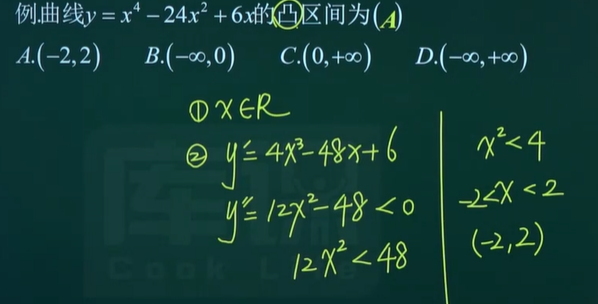 例.曲线y = x⁴ − 24x² + 6x的凸区间为(A)
A.(−2,2)  B.(−∞,0)  C.(0,+∞)  D.(−∞,+∞)
① x∈R
② y′= 4x³−48x+6
y″= 12x²−48 < 0
12x² < 48
x² < 4
-2<x < 2
(-2, 2)